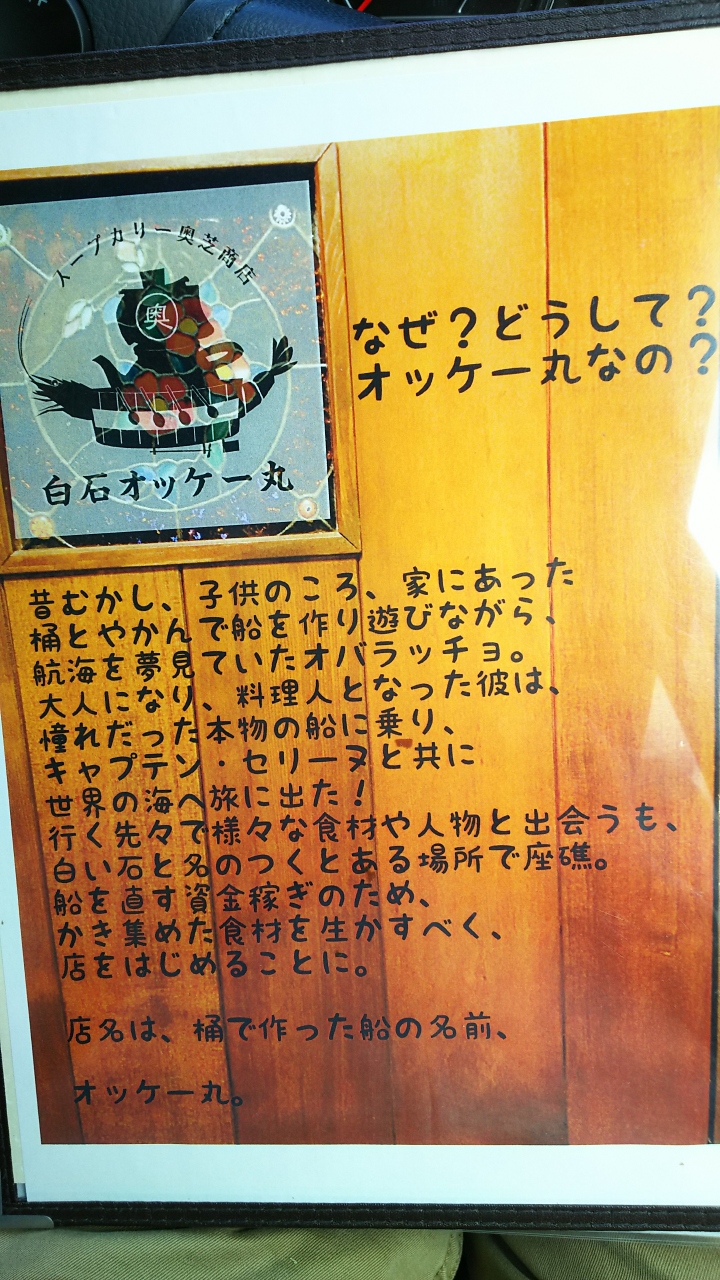 スープカリー奥芝商店
奥
白石オッケー丸
なぜ?どうして?
オッケー丸なの?
昔むかし、子供のころ、家にあった
桶とやかんで船を作り遊びながら、
航海を夢見ていたオバラッチョ。
大人になり、料理人となった彼は、
憧れだった本物の船に乗り、
キャプテン・セリーヌと共に
世界の海へ旅に出た!
行く先々で様々な食材や人物と出会うも、
白い石と名のつくとある場所で座礁。
船を直す資金稼ぎのため、
かき集めた食材を生かすべく、
店をはじめることに。
店名は、桶で作った船の名前、
オッケー丸。